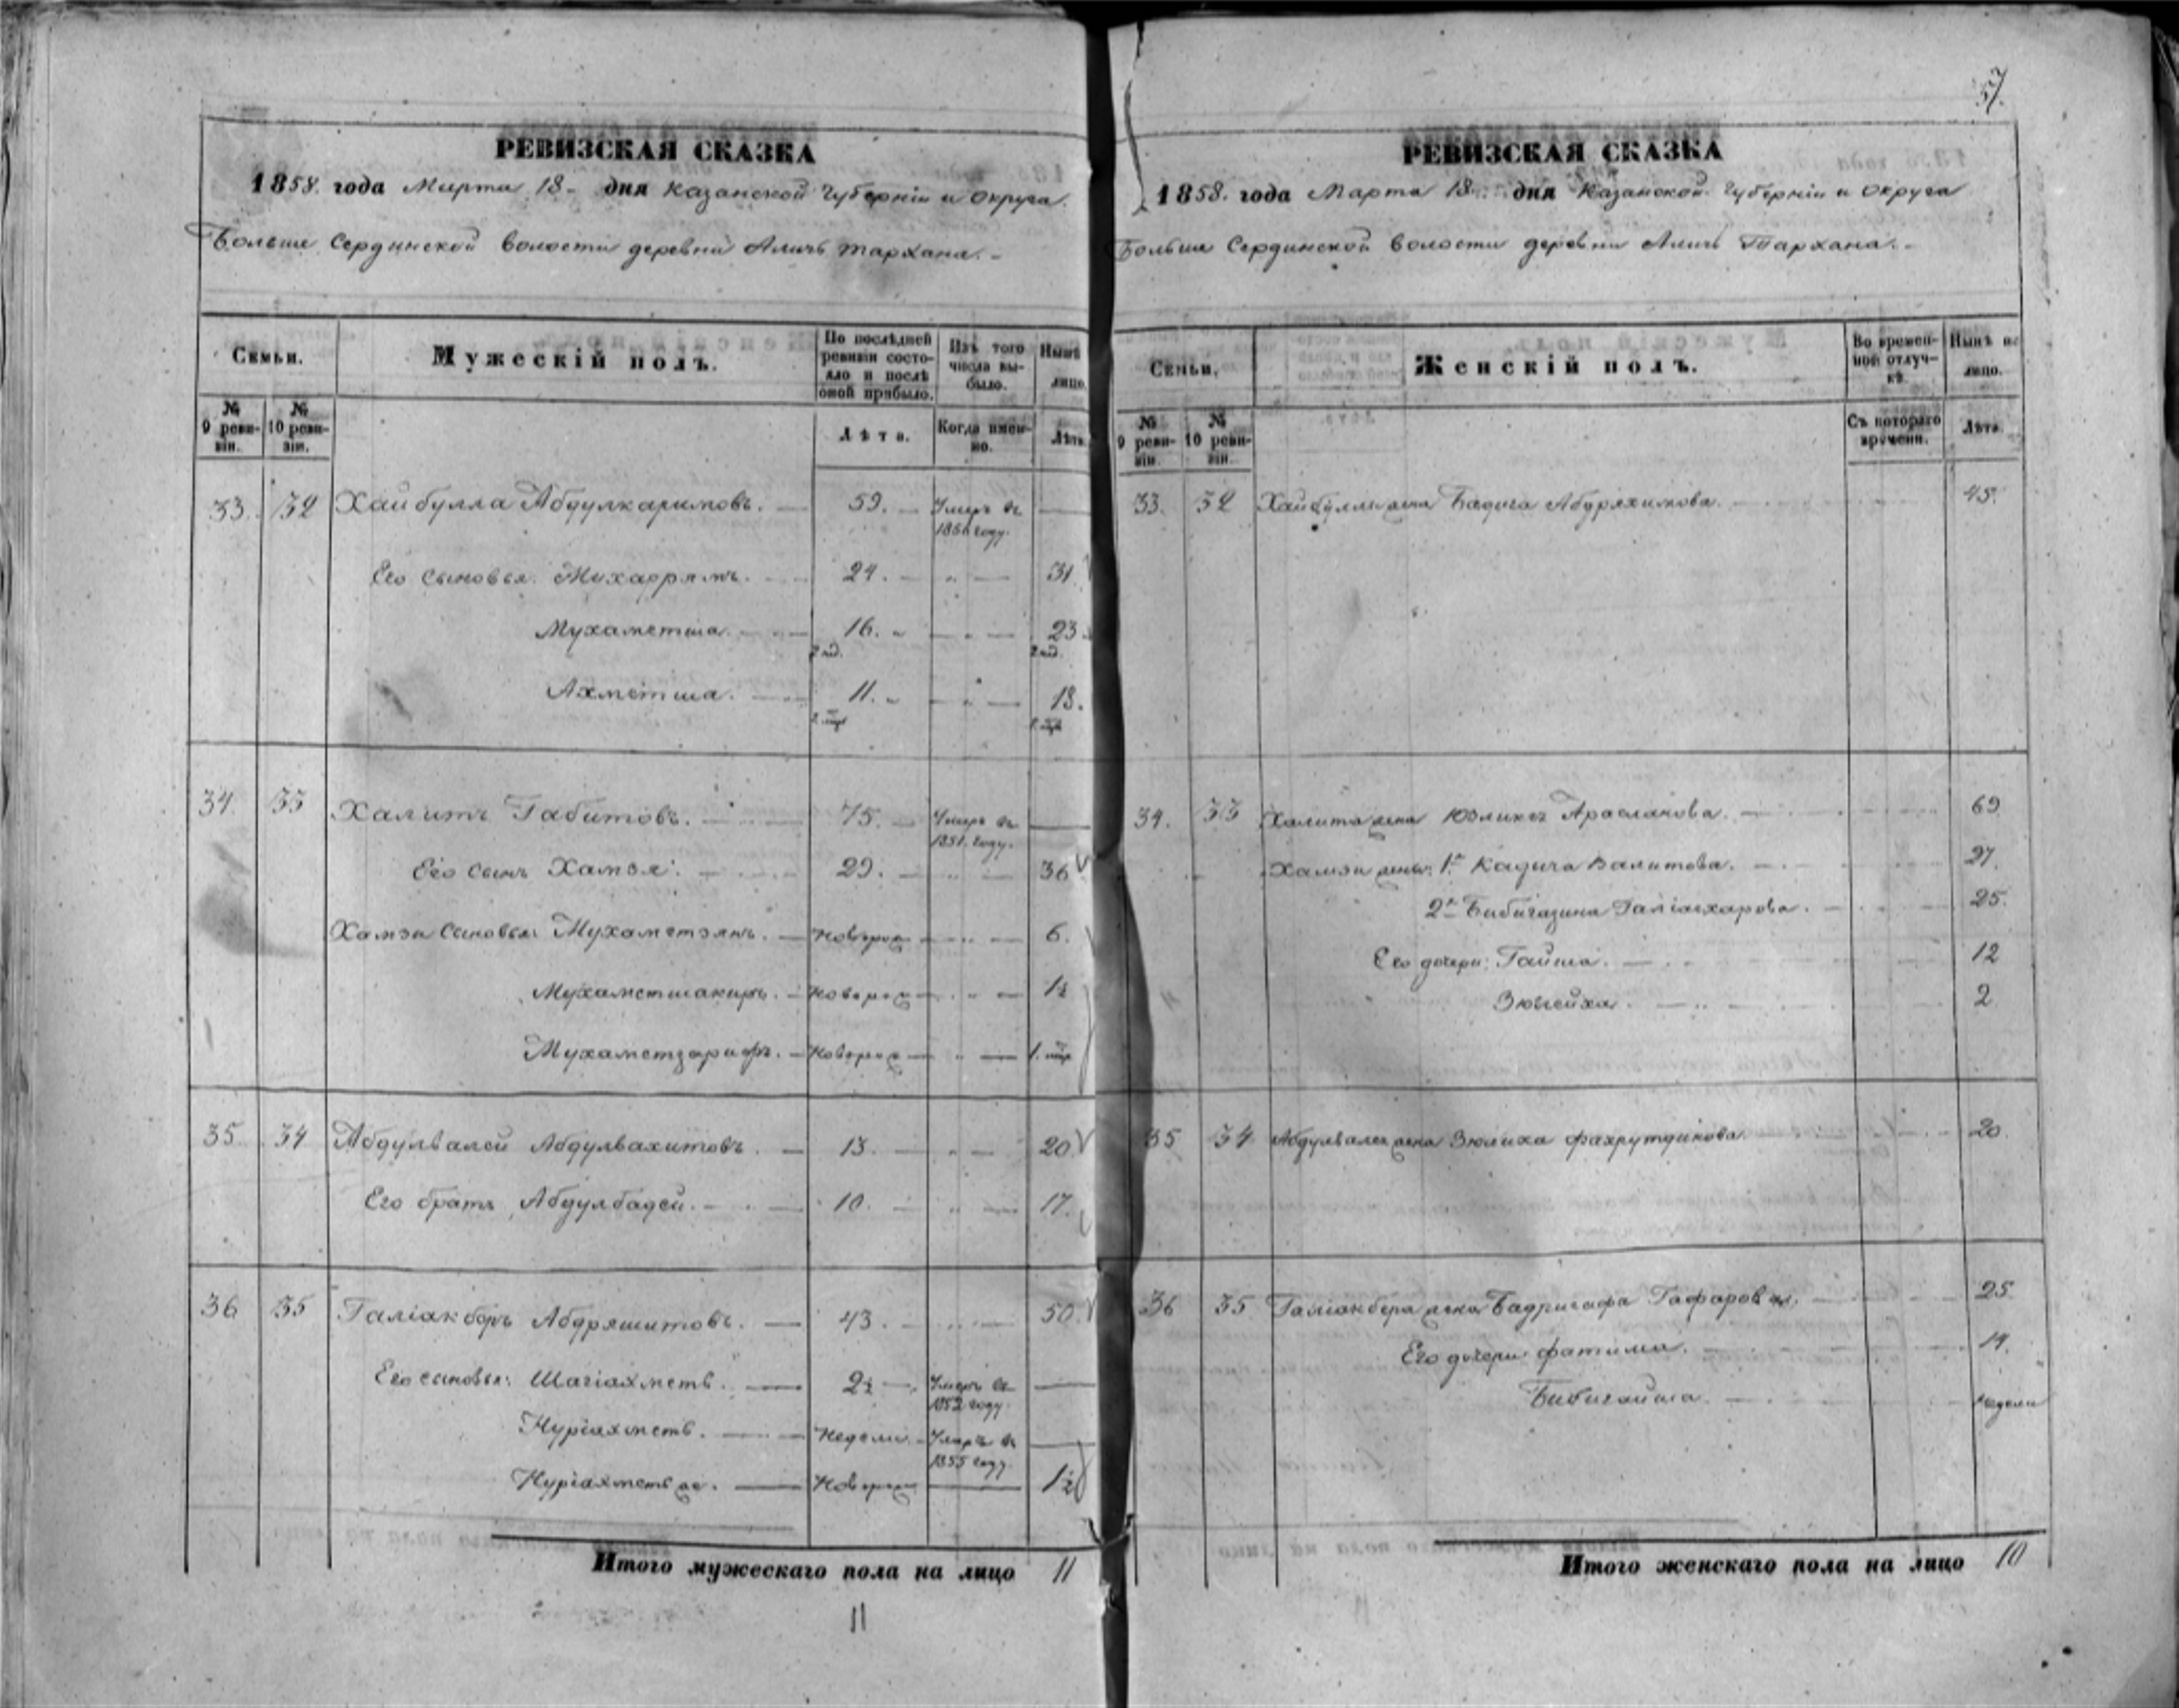 57.
РЕВИЗСКАЯ СКАЗКА
1858. года Марта 18 - дня Казанской Губернiи и округа
Больше Сердинской волости деревни Аличь Тархана. -
Семьи.
Мужескiй полъ.
По послѣдней ревизiи состояло и послѣ оной прибыло.
Изъ того числа выбыло.
Нынѣ лицо.
№ 9 ревизiи.
№ 10 ревизiи.
Лѣта.
Когда именно.
Лѣта
33. 32 Хайбулла Абдулкаримовъ. 59. Умеръ въ 1856 году.
Его сыновья: Мухаррямъ. 24. 31.
Мухаметша. 16. 23.
Ахметша. 11. 18.
34. 33 Халитъ Габитовъ. 75. Умеръ въ 1851. году.
Его сынъ Хамзя. 29. 36
Хамзи сыновья: Мухаметзянъ. Новорож 6.
Мухаметшакиръ. Новорож 1½
Мухаметзарифъ. Новорож
35. 34 Абдулвалей Абдулвахитовъ. 13. 20
Его братъ Абдулбадей. 10. 17.
36 35 Галiакберъ Абдряшитовъ. 43. 50.
Его сыновья: Шагiахметъ. 2½ Умеръ въ 1852 году.
Нурiахметъ. Недели. Умеръ въ 1855 году.
Нурiахметъ же. Новорож 1½
Итого мужескаго пола на лицо 11
11
РЕВИЗСКАЯ СКАЗКА
1858. года Марта 18 дня Казанской Губернiи и округа
Больше Сердинской волости деревни Аличь Тархана. -
Семьи.
Женскiй полъ.
Во временной отлучкѣ.
Нынѣ на лицо.
№ 9 ревизiи.
№ 10 ревизiи.
Съ котораго времени.
Лѣта.
33. 32 Хайбуллы жена Бадига Абдряхимова. 45.
34. 33 Халита жена Арасланова. 69
Хамзи жены: 1я Кадича Валитова. 27.
2я Галiаскарова. 25.
Его дочери: Гайша. 12
2
35 34 Абдулвалея жена Зюлиха Фахрутдинова 20.
36 35 Галiакбера жена Гафарова. 25
Его дочери: Фатима. 14.
Бибигайша. недели
Итого женскаго пола на лицо 10